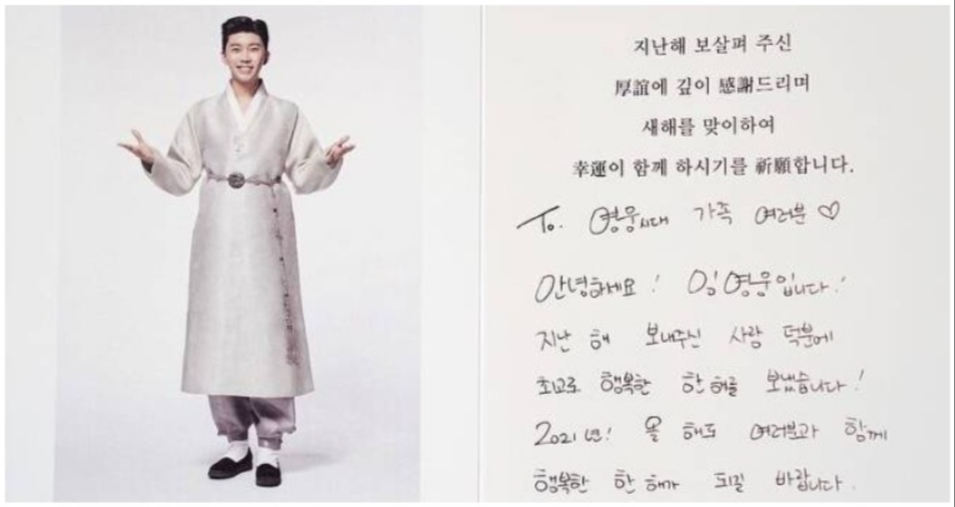 지난해 보살펴 주신
厚誼에 깊이 感謝드리며
새해를 맞이하여
幸運이 함께 하시기를 祈願합니다.
To. 영웅시대 가족 여러분 ♡
안녕하세요! 임영웅입니다!
지난 해 보내주신 사랑 덕분에
최고로 행복한 한 해를 보냈습니다!
2021년! 올 해도 여러분과 함께
행복한 한 해가 되길 바랍니다.